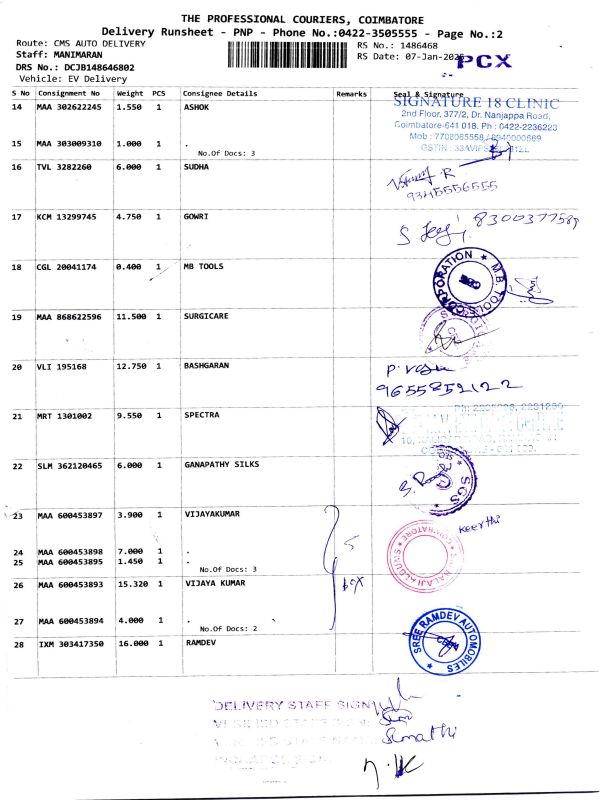 THE PROFESSIONAL COURIERS, COIMBATORE
Delivery Runsheet - PNP - Phone No.:0422-3505555 - Page No.:2
Route: CMS AUTO DELIVERY
RS No.: 1486468
Staff: MANIMARAN
RS Date: 07-Jan-2025
PCX
DRS No.: DCJB148646802
Vehicle: EV Delivery
S No Consignment No Weight PCS Consignee Details Remarks Seal & Signature
14 MAA 302622245 1.550 1 ASHOK
SIGNATURE 18 CLINIC
2nd Floor, 377/2, Dr. Nanjappa Road,
Coimbatore-641 018. Ph : 0422-2236223
15 MAA 303009310 1.000 1 .
No.Of Docs: 3
16 TVL 3282260 6.000 1 SUDHA
R
9345556555
17 KCM 13299745 4.750 1 GOWRI
8300377589
18 CGL 20041174 0.400 1 MB TOOLS
CORPORATION ★ M.B. TOOLS
19 MAA 868622596 11.500 1 SURGICARE
20 VLI 195168 12.750 1 BASHGARAN
9655852122
21 MRT 1301002 9.550 1 SPECTRA
22 SLM 362120465 6.000 1 GANAPATHY SILKS
SGS
23 MAA 600453897 3.900 1 VIJAYAKUMAR
Keerthi
24 MAA 600453898 7.000 1 .
25 MAA 600453895 1.450 1 .
No.Of Docs: 3
5
box
26 MAA 600453893 15.320 1 VIJAYA KUMAR
27 MAA 600453894 4.000 1 .
No.Of Docs: 2
28 IXM 303417350 16.000 1 RAMDEV
SREE RAMDEV AUTOMOBILES
DELIVERY STAFF SIGN